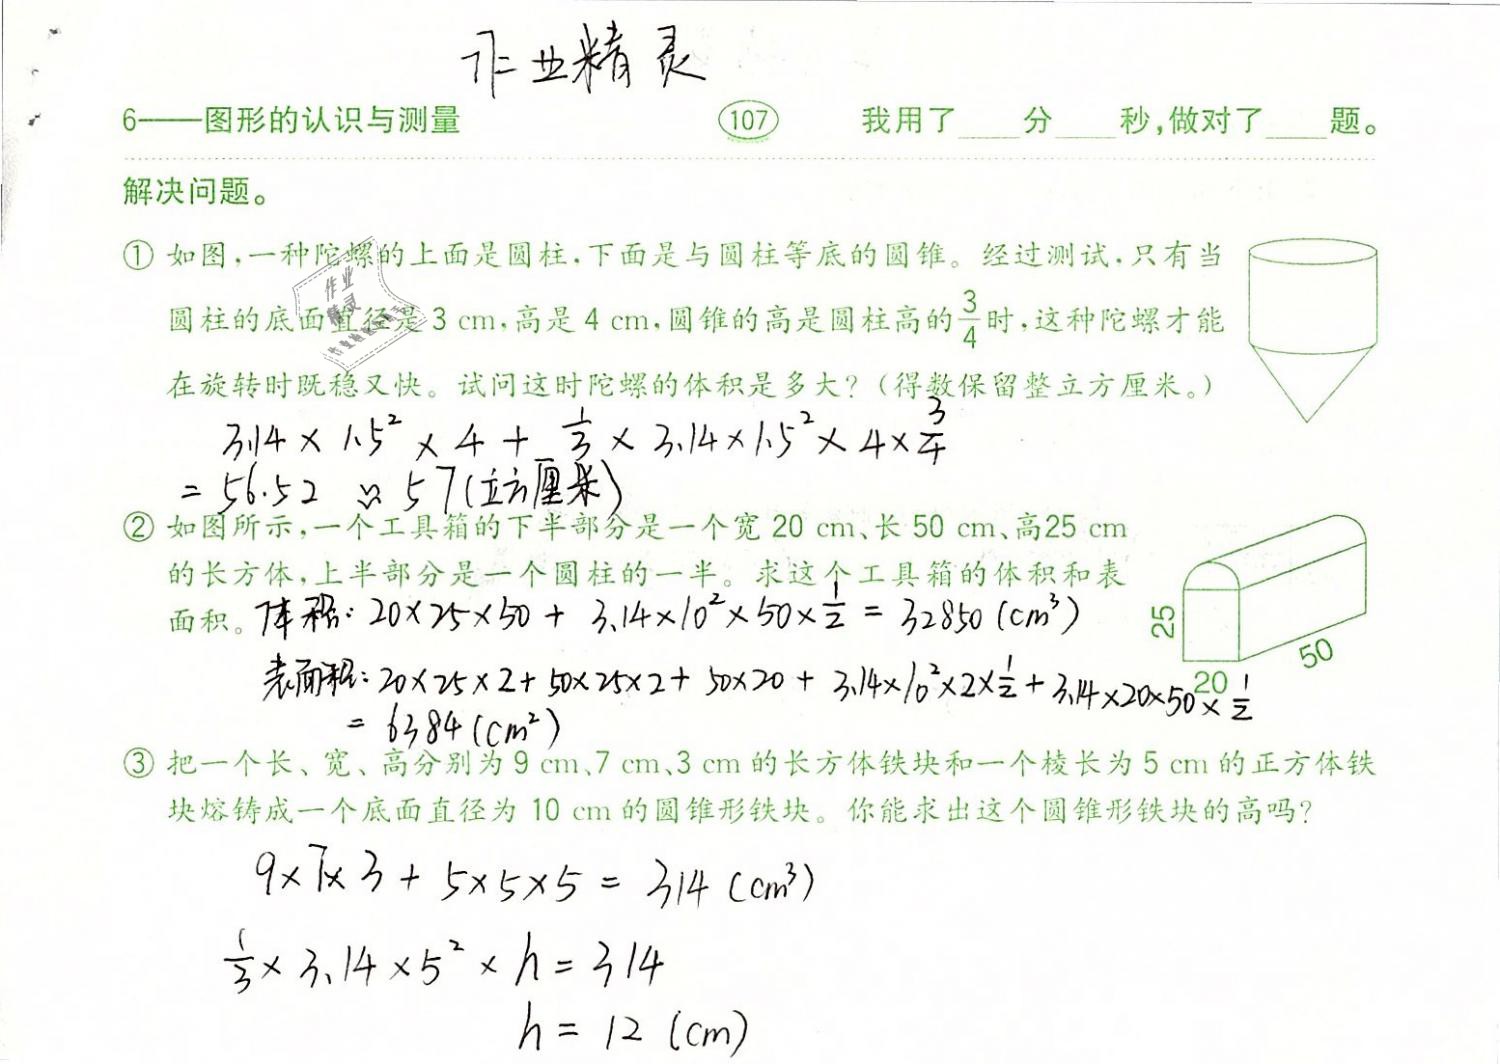 作业精灵
6——图形的认识与测量 107 我用了____分____秒,做对了____题。
解决问题。
① 如图,一种陀螺的上面是圆柱,下面是与圆柱等底的圆锥。经过测试,只有当
圆柱的底面直径是3 cm,高是4 cm,圆锥的高是圆柱高的3/4时,这种陀螺才能
在旋转时既稳又快。试问这时陀螺的体积是多大?(得数保留整立方厘米。)
作业
精灵
3.14×1.5²×4+1/3×3.14×1.5²×4×3/4
=56.52≈57(立方厘米)
② 如图所示,一个工具箱的下半部分是一个宽20 cm、长50 cm、高25 cm
的长方体,上半部分是一个圆柱的一半。求这个工具箱的体积和表
面积。体积:20×25×50+3.14×10²×50×1/2=32850(cm³)
25
50
20
表面积:20×25×2+50×25×2+50×20+3.14×10²×2×1/2+3.14×20×50×1/2
=6384(cm²)
③ 把一个长、宽、高分别为9 cm、7 cm、3 cm的长方体铁块和一个棱长为5 cm的正方体铁
块熔铸成一个底面直径为10 cm的圆锥形铁块。你能求出这个圆锥形铁块的高吗?
9×7×3+5×5×5=314(cm³)
1/3×3.14×5²×h=314
h=12(cm)